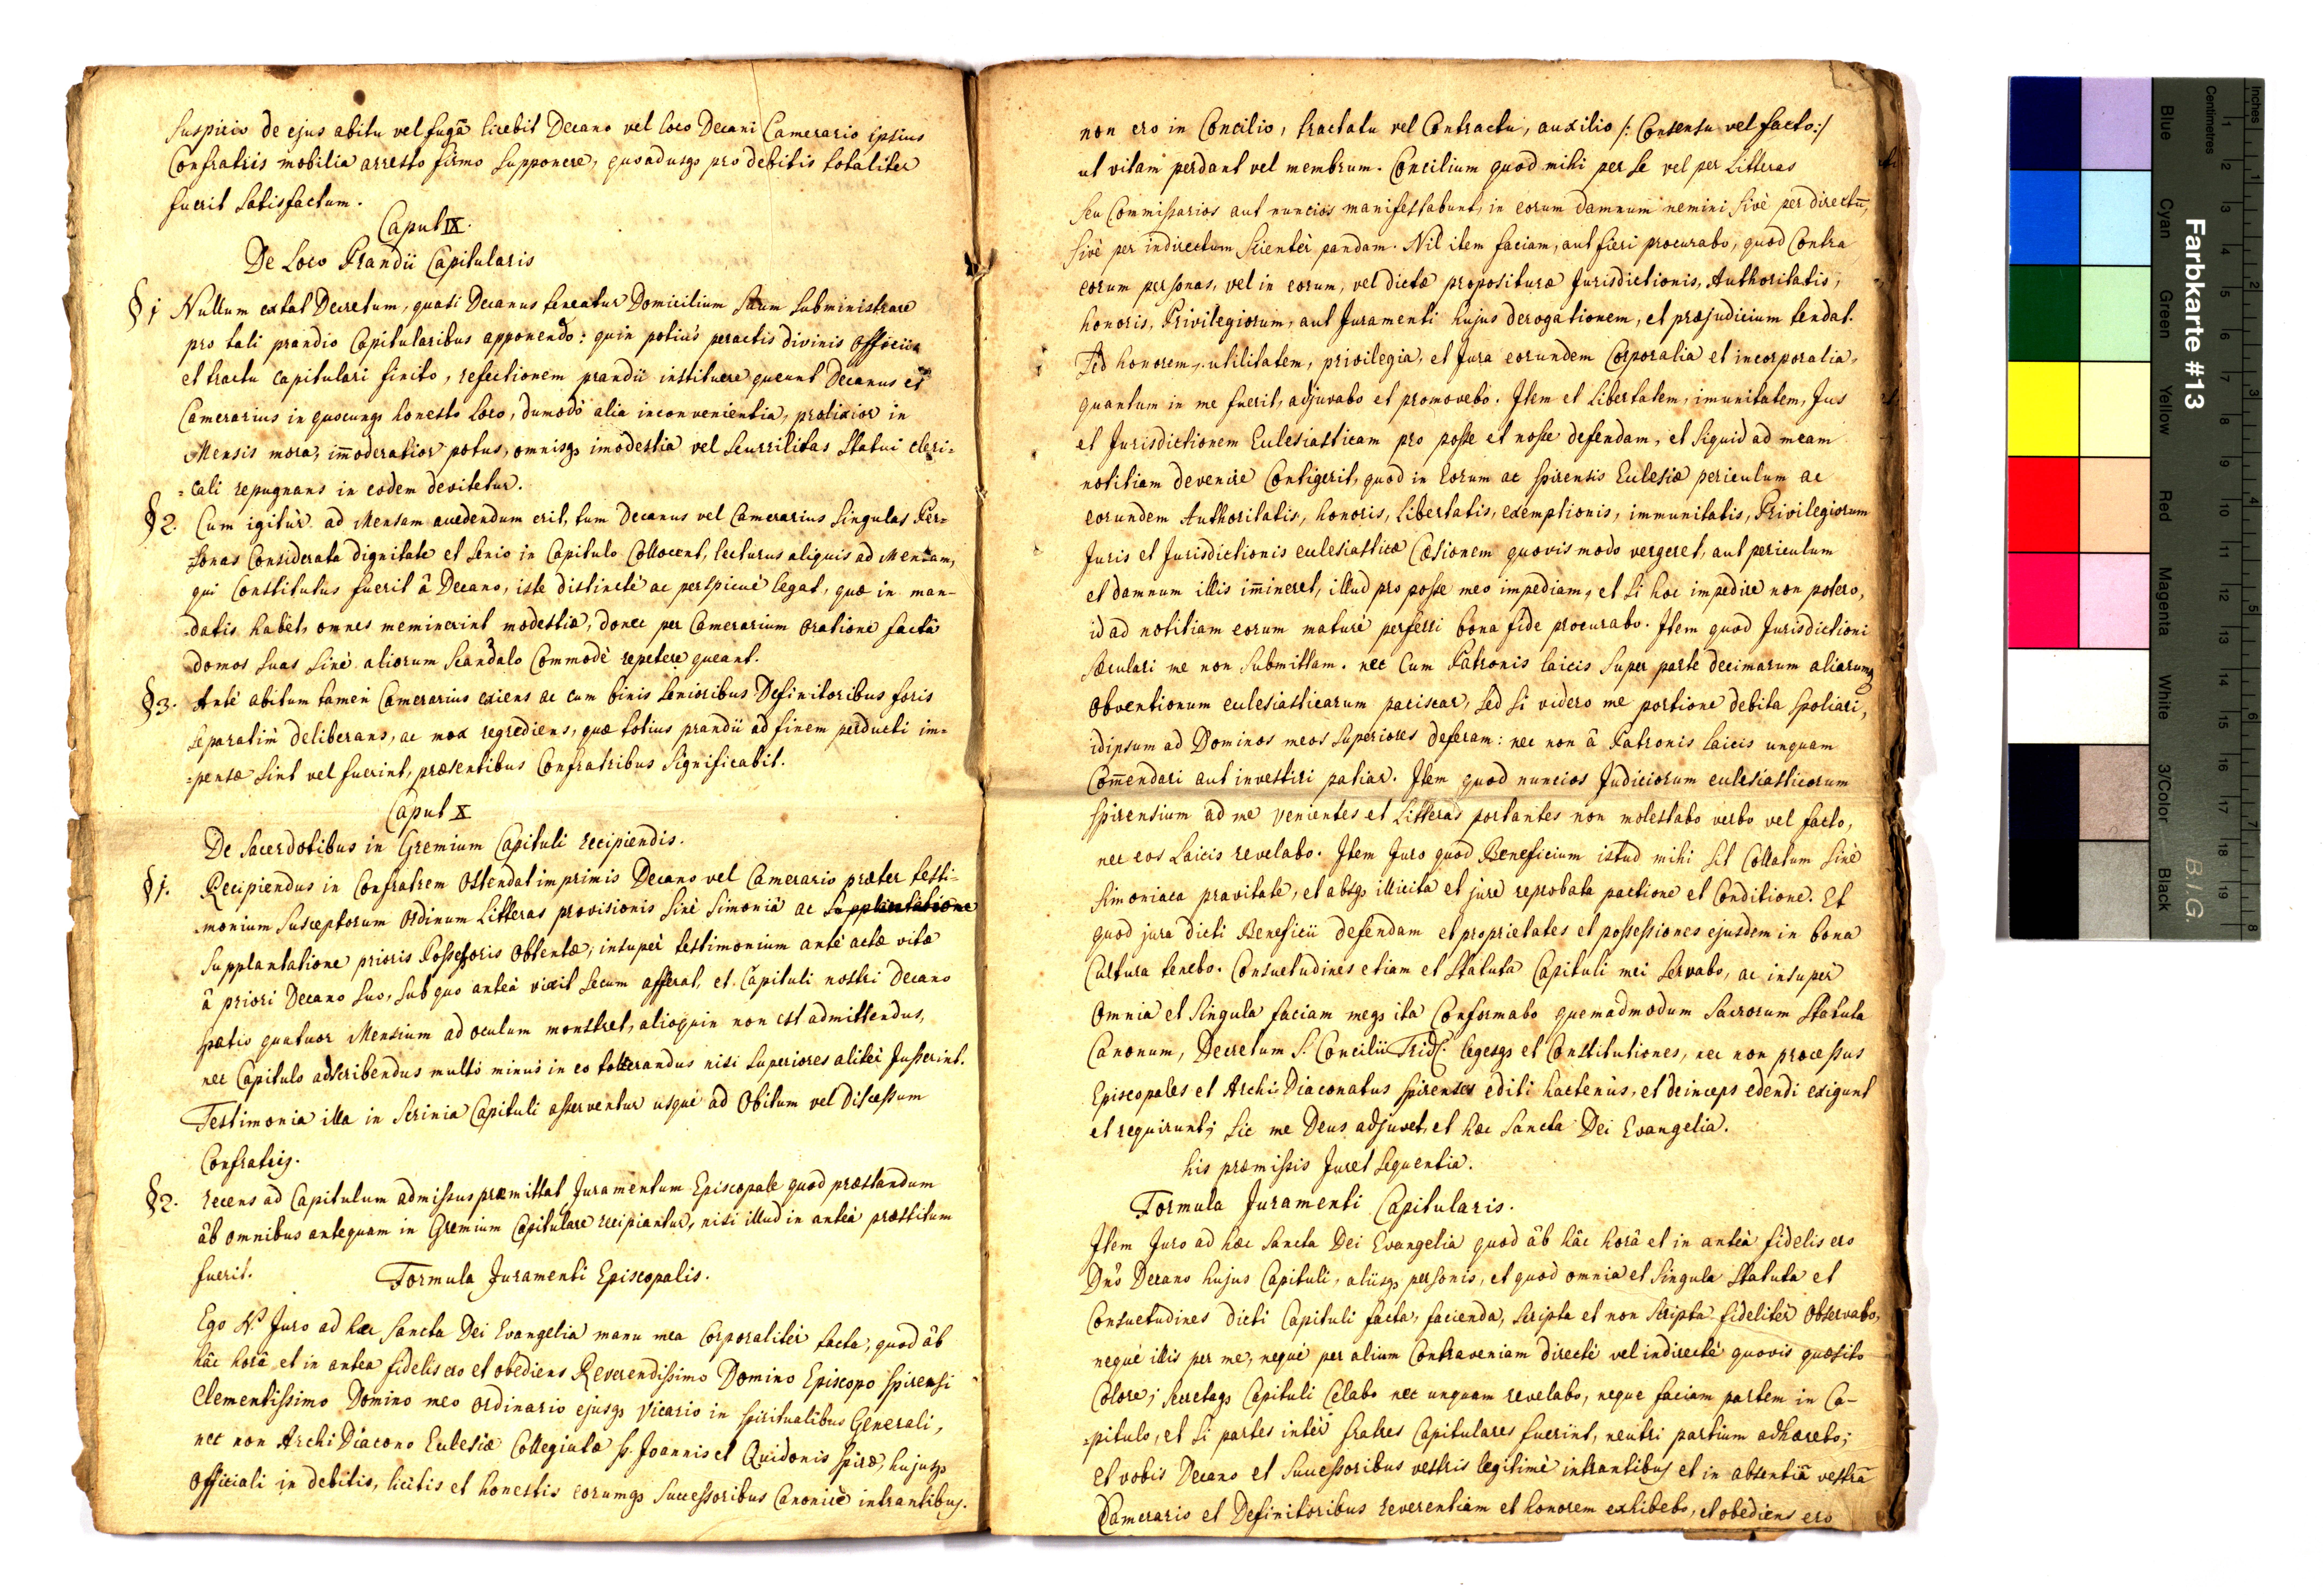 suspicio de ejus abitu vel fugâ licebit Decano vel loco Decani Camerario ipsius
Confratris mobilia arresto firmo supponere, quoadusq; pro debitis totaliter
fuerit satisfactum.
Caput IX.
De Loco Prandii Capitularis
§ 1 Nullum extat Decretum, quasi Decanus teneatur Domicilium suum subministrare
pro tali prandio Capitularibus apponendo: quin potiùs peractis divinis officiis
et tractu capitulari finito, refectionem prandii instituere queunt Decanus et
Camerarius in quocunq; honesto loco, dumodò alia inconvenientia, prolixior in
Mensis mora, im̄oderatior potus, omnisq; imodestia vel scurrilitas statui cleri=
=cali repugnans in eodem devitetur.
§ 2. Cum igitùr ad Mensam accedendum erit, tum Decanus vel Camerarius singulas Per=
sonas Considerata dignitate et senio in Capitulo Collocent, lecturus aliquis ad Mensam,
qui Constitutus fuerit â Decano, iste distinctè ac perspicuè legat, quæ in man-
-datis habet, omnes meminerint modestiæ, donec per Camerarium oratione factâ
domos suas sinè aliorum scandalo Commodè repetere queant.
§ 3. Antè abitum tamen Camerarius exiens ac cum binis senioribus Definitoribus foris
separatim deliberans, ac mox regrediens, quæ totius prandii ad finem perducti im=
=pensæ sint vel fuerint, præsentibus Confratribus significabit.
Caput X
De Sacerdotibus in Gremium Capituli recipiendis.
§ 1. Recipiendus in Confratrem ostendat imprimis Decano vel Camerario præter testi=
monium susceptorum ordinum Litteras provisionis sinè simoniâ ac supplantatione
supplantatione prioris Possessoris obtentæ, insupèr testimonium antè actæ vitæ
â priori Decano suo, sub quo anteà vixit secum afferat, et Capituli nostri Decano
spatio quatuor Mensium ad oculum monstret, alioquin non est admittendus,
nec Capitulo adscribendus multò minùs in eo tollerandus nisi superiores alitèr Jusserint.
Testimonia illa in scrinia Capituli asserventur usquè ad obitum vel discessum
Confratris.
§ 2. recens ad Capitulum admissus præmittat Juramentum Episcopale quod præstandum
âb omnibus antequam in Gremium Capitulare recipiantur, nisi illud in anteà præstitum
fuerit. Formula Juramenti Episcopalis.
Ego N. Juro ad hæc sancta Dei Evangelia manu mea Corporalitèr tacta, quod âb
hâc horâ et in antea fidelis ero et obediens Reverendissimo Domino Episcopo Spirensi
Clementissimo Domino meo ordinario ejusq; Vicario in spiritualibus Generali,
nec non Archi Diacono Eclesiæ Collegiatæ S. Joannis et Quidonis Spiræ, hujusq;
officiali in debitis, licitis et honestis eorumq; successoribus Canonicè intrantibus.
non ero in Concilio, tractatu vel Contractu, auxilio /: Consensu vel facto:/
ut vitam perdant vel membrum. Concilium quod mihi per se vel per Litteras
seu Commissarios aut nuncios manifestabunt, in eorum damnum nemini sivè per directū,
sivè per indirectum scientèr pandam. Nil item faciam, aut fieri procurabo, quod Contra
eorum personas, vel in eorum, vel dictæ præpositura Jurisdictionis, Authoritatis,
honoris, Privilegiorum, aut Juramenti hujus derogationem, et præjudicium tendat.
Sed honorem, utilitatem, privilegia, et Jura eorundem Corporalia et incorporalia,
quantum in me fuerit, adjuvabo et promovebo. Item et Libertatem, imunitatem, Jus
et Jurisdictionem Eclesiasticam pro posse et nosse defendam, et siquid ad meam
notitiam devenire Contigerit, quod in eorum ac Spirensis Eclesiæ periculum ac
eorundem Authoritatis, honoris, Libertatis, exemptionis, immunitatis, Privilegiorum
Juris et Jurisdictionis eclesiasticæ Cæsionem quovis modo vergeret, aut periculum
et damnum illis im̄ineret, illud pro posse meo impediam, et si hoc impedire non potero,
id ad notitiam eorum maturè perferri bona fide procurabo. Item quod Jurisdictioni
sæculari me non submittam. nec Cum Patronis laicis super parte decimarum aliarumq;
obventionum eclesiasticarum paciscar, sed si videro me portione debita spoliari,
idipsum ad Dominos meos superiores deferam: nec non â Patronis laicis unquam
Com̄endari aut investiri patiar. Item quod nuncios Judiciorum eclesiasticorum
Spirensium ad me venientes et Litteras portantes non molestabo verbo vel facto,
nec eos Laicis revelabo. Item Juro quod Beneficium istud mihi sit Collatum sinè
simoniaca pravitate, et absq; illicita et jure reprobata pactione et Conditione. Et
quod jura dicti Beneficii defendam et proprietates et possessiones ejusdem in bona
Cultura tenebo. Consuetudines etiam et statuta Capituli mei servabo, ac insupèr
omnia et singula faciam meq; ita Conformabo quemadmodum sacrorum statuta
Canonum, Decretum S. Concilii Tridt. legesq; et Constitutiones, nec non processus
Episcopales et Archi-Diaconatus Spirenses editi hactenùs, et deinceps edendi exigunt
et requirunt; sic me Deus adjuvet, et hæc Sancta Dei Evangelia.
his præmissis Juret sequentia.
Formula Juramenti Capitularis.
Item Juro ad hæc sancta Dei Evangelia quod âb hâc horâ et in anteà fidelis ero
Dn̄o Decano hujus Capituli, aliisq; personis, et quod omnia et singula statuta et
Consuetudines dicti Capituli facta, facienda, scripta et non scripta fidelitèr observabo,
nequè illis per me, nequè per alium Contraveniam directè vel indirectè quovis quæsito
Colore; secretaq; Capituli Celabo nec unquam revelabo, neque faciam partem in Ca-
=pitulo, et si partes intèr fratres Capitulares fuerint, neutri partium adhærebo;
et vobis Decano et successoribus vestris legitimè intrantibus et in absentiâ vestrâ
Camerario et Definitoribus reverentiam et honorem exhibebo, et obediens ero
Farbkarte #13
B.I.G.
Inches
Centimetres
Blue
Cyan
Green
Yellow
Red
Magenta
White
3/Color
Black
1 2 3 4 5 6 7 8 9 10 11 12 13 14 15 16 17 18 19
1 2 3 4 5 6 7 8